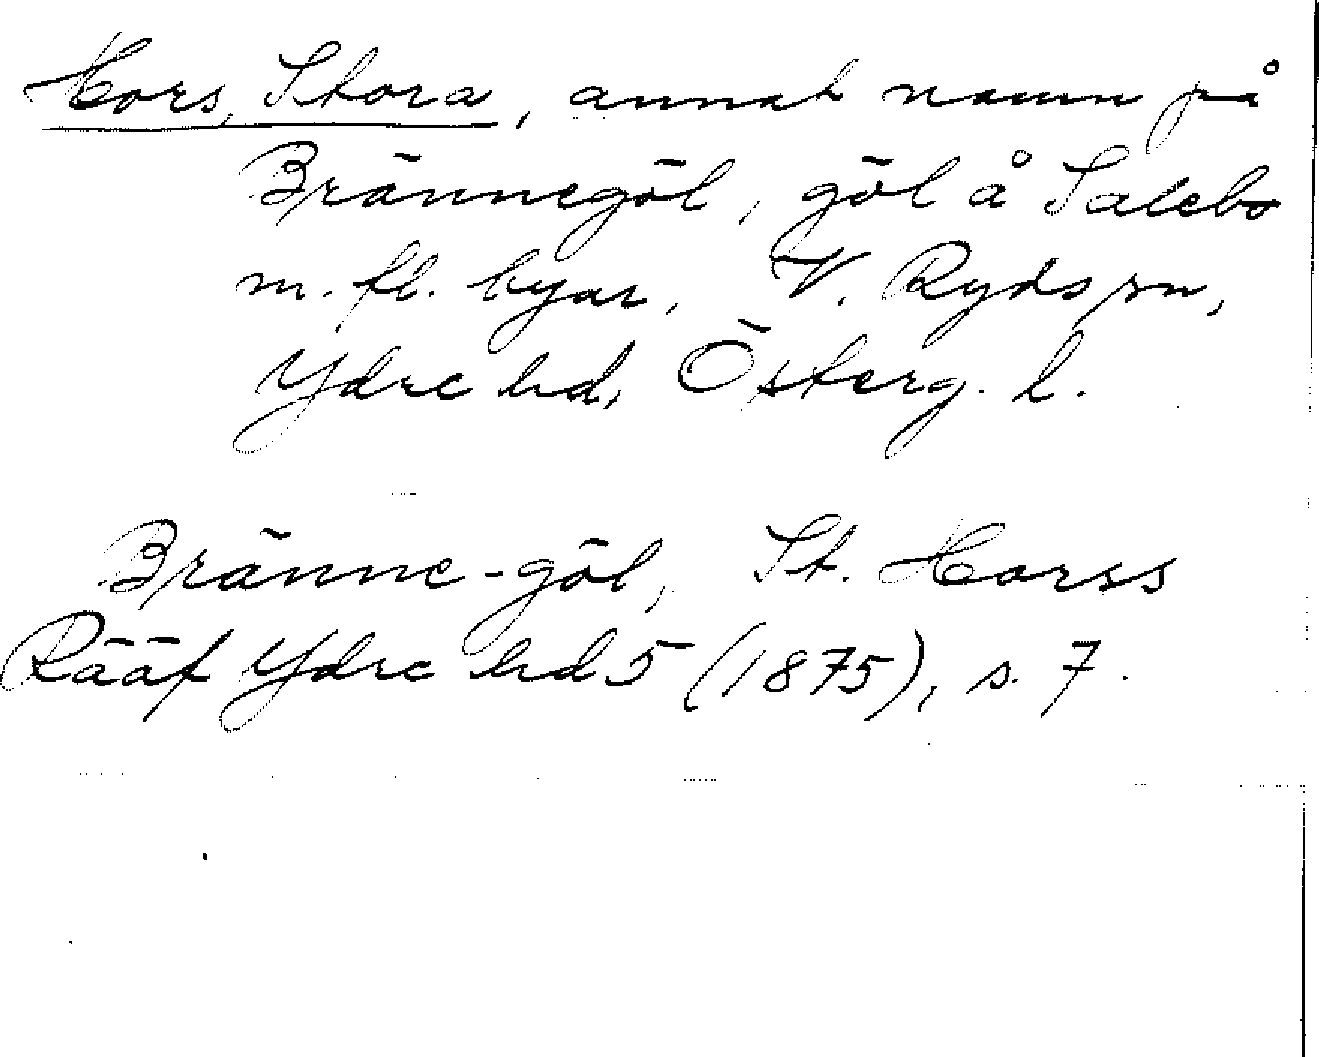 Hors, Stora, annat namn på
Brännegöl, göl å Salebo
m. fl. byar, V. Ryds sn,
Ydre hd, Österg. l.
Bränne-göl, St. Horss
Rääf Ydre hd 5 (1875), s. 7.